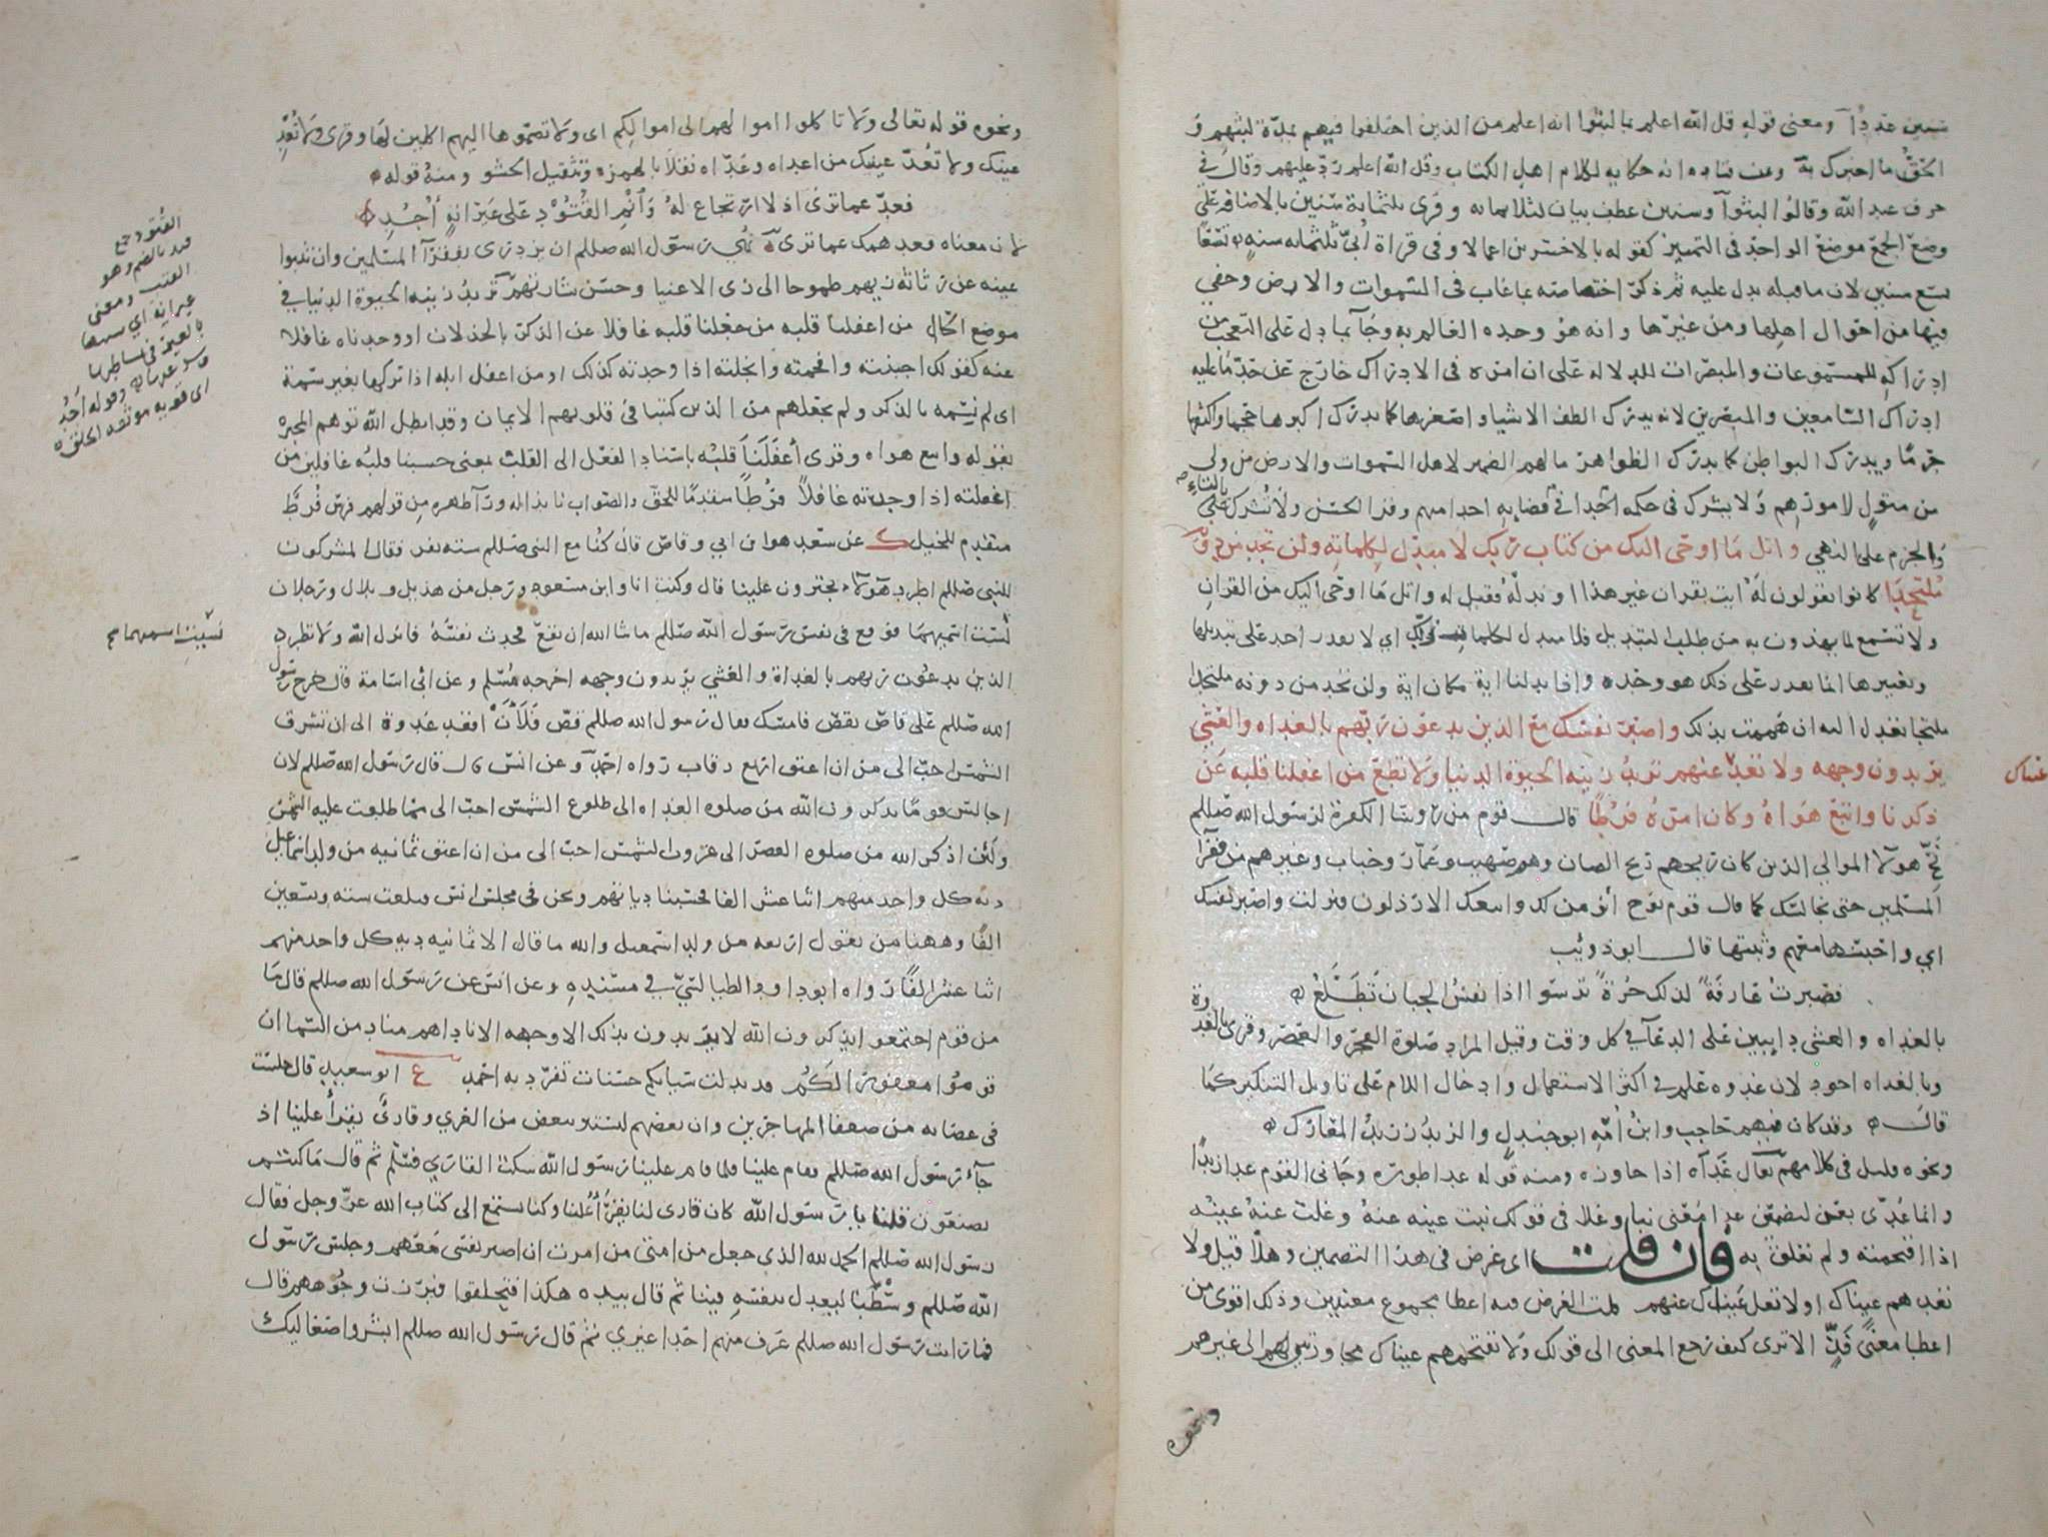 سنين عددا ومعنى قوله قل الله اعلم بما لبثوا انه اعلم من الذين اختلفوا فيهم بمدة لبثهم و
الحق ما اخبرك به وعن قتاده انه حكايه لكلام اهل الكتاب وقل الله اعلم رد عليهم وقال في
حرف عبد الله وقالوا لبثوا وسنين عطف بيان لثلاثمائه وقرى ثلثمائة سنين بالاضافه على
وضع الجمع موضع الواحد فى التمييز كقوله بالاخسرين اعمالا وفى قراة ابيّ ثلثمائه سنه تسعا
تسع سنين لان ما قبله يدل عليه ثم ذكر اختصاصه بما غاب فى السموات والارض وخفي
فيها من احوال اهلها ومن غيرها وانه هو وحده العالم به وجا بما دل على التعجب من
ادراكه للمسموعات والمبصرات للدلاله على ان امره فى الادراك خارج عن حد ما عليه
ادراك السامعين والمبصرين لانه يدرك الطف الاشيا واصغرها كما يدرك اكبرها حجما واكثفها
جرما ويدرك البواطن كما يدرك الظواهر ما لهم الضمير لاهل السموات والارض من ولي
من متول لامورهم ولا يشرك فى حكمه احدا فى قضايه احدا منهم وقرا الحسن ولا تشرك بالتاء
والجزم على النهي واتل ما اوحى اليك من كتاب ربك لا مبدل لكلماته ولن تجد من دونه
ملتحدا كانوا يقولون له ايت بقران غير هذا او بدله فقيل له واتل ما اوحى اليك من القران
ولا تسمع لما يهذون به من طلب التبديل فلا مبدل لكلمات ربك اي لا يقدر احد على تبديلها
وتغييرها انما يقدر على ذلك هو وحده واذا بدلنا اية مكان اية ولن تجد من دونه ملتحدا
ملتجا تعدل اليه ان هممت بذلك واصبر نفسك مع الذين يدعون ربهم بالغداه والعشي
يريدون وجهه ولا تعد عينهم تريد زينه الحيوة الدنيا ولا تطع من اغفلنا قلبه عن
عيناك
ذكرنا واتبع هواه وكان امره فرطا قال قوم من روسا الكفرة لرسول الله صللم
نحّ هولا الموالي الذين كان ريحهم ريح الضان وهم صهيب وعمار وخباب وغيرهم من فقرآ
المسلمين حتى نجالسك كما قال قوم نوح انومن لك واتبعك الارذلون فنزلت واصبر نفسك
اي واحبسها معهم وثبتها قال ابو ذويب
فصبرت عارفة لذلك حرة ترسوا اذا نفس الجبان تطلع
بالغداه والعشي دايبين على الدعآ في كل وقت وقيل المراد صلوة الفجر والعصر وقرى بالغدوة
وبالغداه اجود لان غدوه علم في اكثر الاستعمال وادخال اللام على تاويل التنكير كما
قال وقد كان فيهم حاجب وابن امه ابو جندل والزيد زيد المعارك
ونحوه قليل فى كلامهم يقال عداه اذا جاوزه ومنه قوله عدا طوره وجانى القوم عدا زيدا
وانما عدّى بعن لتضمين عدا معنى نبا وعلا فى قولك نبت عينه عنه وعلت عنه عينه
اذا اقتحمته ولم تعلق به فان قلت اى غرض فى هذا التضمين وهلا قيل ولا
تعدهم عيناك او لا تعل عيناك عنهم قلت الغرض فيه اعطا مجموع معنيين وذلك اقوى من
اعطا معنى فذّ الا ترى كيف رجع المعنى الى قولك ولا تقتحمهم عيناك مجاوزتين الى غيرهم
ونحوه
ونحوه قوله تعالى ولا تاكلوا اموالهم الى اموالكم اى ولا تضموها اليهم اكلين لها وقرى ولا تُعْدِ
عينيك ولا تعدّ عينيك من اعداه وعدّاه نقلا بالهمزه وتثقيل الحشو ومنه قوله
فعد عما ترى اذ لا ارتجاع له وانم القتود على عيرانة اُجُد
لان معناه فعد همك عما ترى نهي رسول الله صللم ان يزدرى بفقرآ المسلمين وان تنبوا
عينه عن رثاثة زيهم طموحا الى زى الاغنيا وحسن شارتهم تريد زينه الحيوة الدنيا في
موضع الحال من اغفلنا قلبه من جعلنا قلبه غافلا عن الذكر بالخذلان او وجدناه غافلا
عنه كقولك اجبنته وافحمته وابخلته اذا وجدته كذلك او من اغفل ابله اذا تركها بغير سمة
اى لم نسمه بالذكر ولم نجعلهم من الذين كتبنا في قلوبهم الايمان وقد ابطل الله توهم المجبره
بقوله واتبع هواه وقرى أغفلنا قلبه باسناد الفعل الى القلب بمعنى حسبنا قلبه غافلين من
اغفلته اذا وجدته غافلا فرطا متقدما للحق والصواب نابذا له ورآ ظهره من قولهم فرس فرط
متقدم للخيل ك عن سعد هو ابن ابي وقاص قال كنا مع النبى صللم سته نفر فقال المشركون
للنبى صللم اطرد هولاء يجترون علينا قال وكنت انا وابن مسعود ورجل من هذيل وبلال ورجلان
لست اسميهما فوقع فى نفس رسول الله صللم ما شا الله ان يقع فحدث نفسه فانزل الله ولا تطرد
نسيت اسمهما م
الذين يدعون ربهم بالغداة والعشي يريدون وجهه اخرجه مسلم وعن ابى امامة قال خرج رسول
الله صللم على قاص يقص فامسك فقال رسول الله صللم قص فلأن اقعد غدوة الى ان تشرق
الشمس احب الى من ان اعتق اربع رقاب رواه احمد وعن انس قال قال رسول الله صللم لان
اجالس قوما يذكرون الله من صلوه الغداه الى طلوع الشمس احب الى مما طلعت عليه الشمس
ولئن اذكر الله من صلوه العصر الى غروب الشمس احب الى من ان اعتق ثمانيه من ولد اسماعيل
ديه كل واحد منهم اثنا عشر الفا فحسبنا دياتهم ونحن فى مجلس انس فبلغت سته وتسعين
الفا وههنا من يقول اربعه من ولد اسمعيل والله ما قال الا ثمانيه ديه كل واحد منهم
اثنا عشر الفا رواه ابو داود الطيالسي في مسنده وعن انس عن رسول الله صللم قال ما
من قوم اجتمعوا يذكرون الله لا يريدون بذلك الا وجهه الا ناداهم مناد من السما ان
قوموا مغفورا لكم قد بدلت سيآتكم حسنات تفرد به احمد ع ابو سعيد قال جلست
فى عصابه من ضعفا المهاجرين وان بعضهم ليستتر ببعض من العري وقارئ يقرأ علينا اذ
جآء رسول الله صللم فقام علينا فلما قام علينا رسول الله سكت القاري فسلم ثم قال ما كنتم
تصنعون قلنا يا رسول الله كان قارى لنا يقرأ علينا وكنا نستمع الى كتاب الله عز وجل فقال
رسول الله صللم الحمد لله الذى جعل من امتى من امرت ان اصبر نفسى معهم وجلس رسول
الله صللم وسطنا ليعدل بنفسه فينا ثم قال بيده هكذا فتحلقوا وبرزت وجوههم قال
فما رايت رسول الله صللم عرف منهم احدا غيري ثم قال رسول الله صللم ابشروا صعاليك
القتود جمع
قتد بالضم وهو
القتب ومعنى
عيرانة اي
بالعير في
وقوله اجد
اى قويه موثقه الخلق